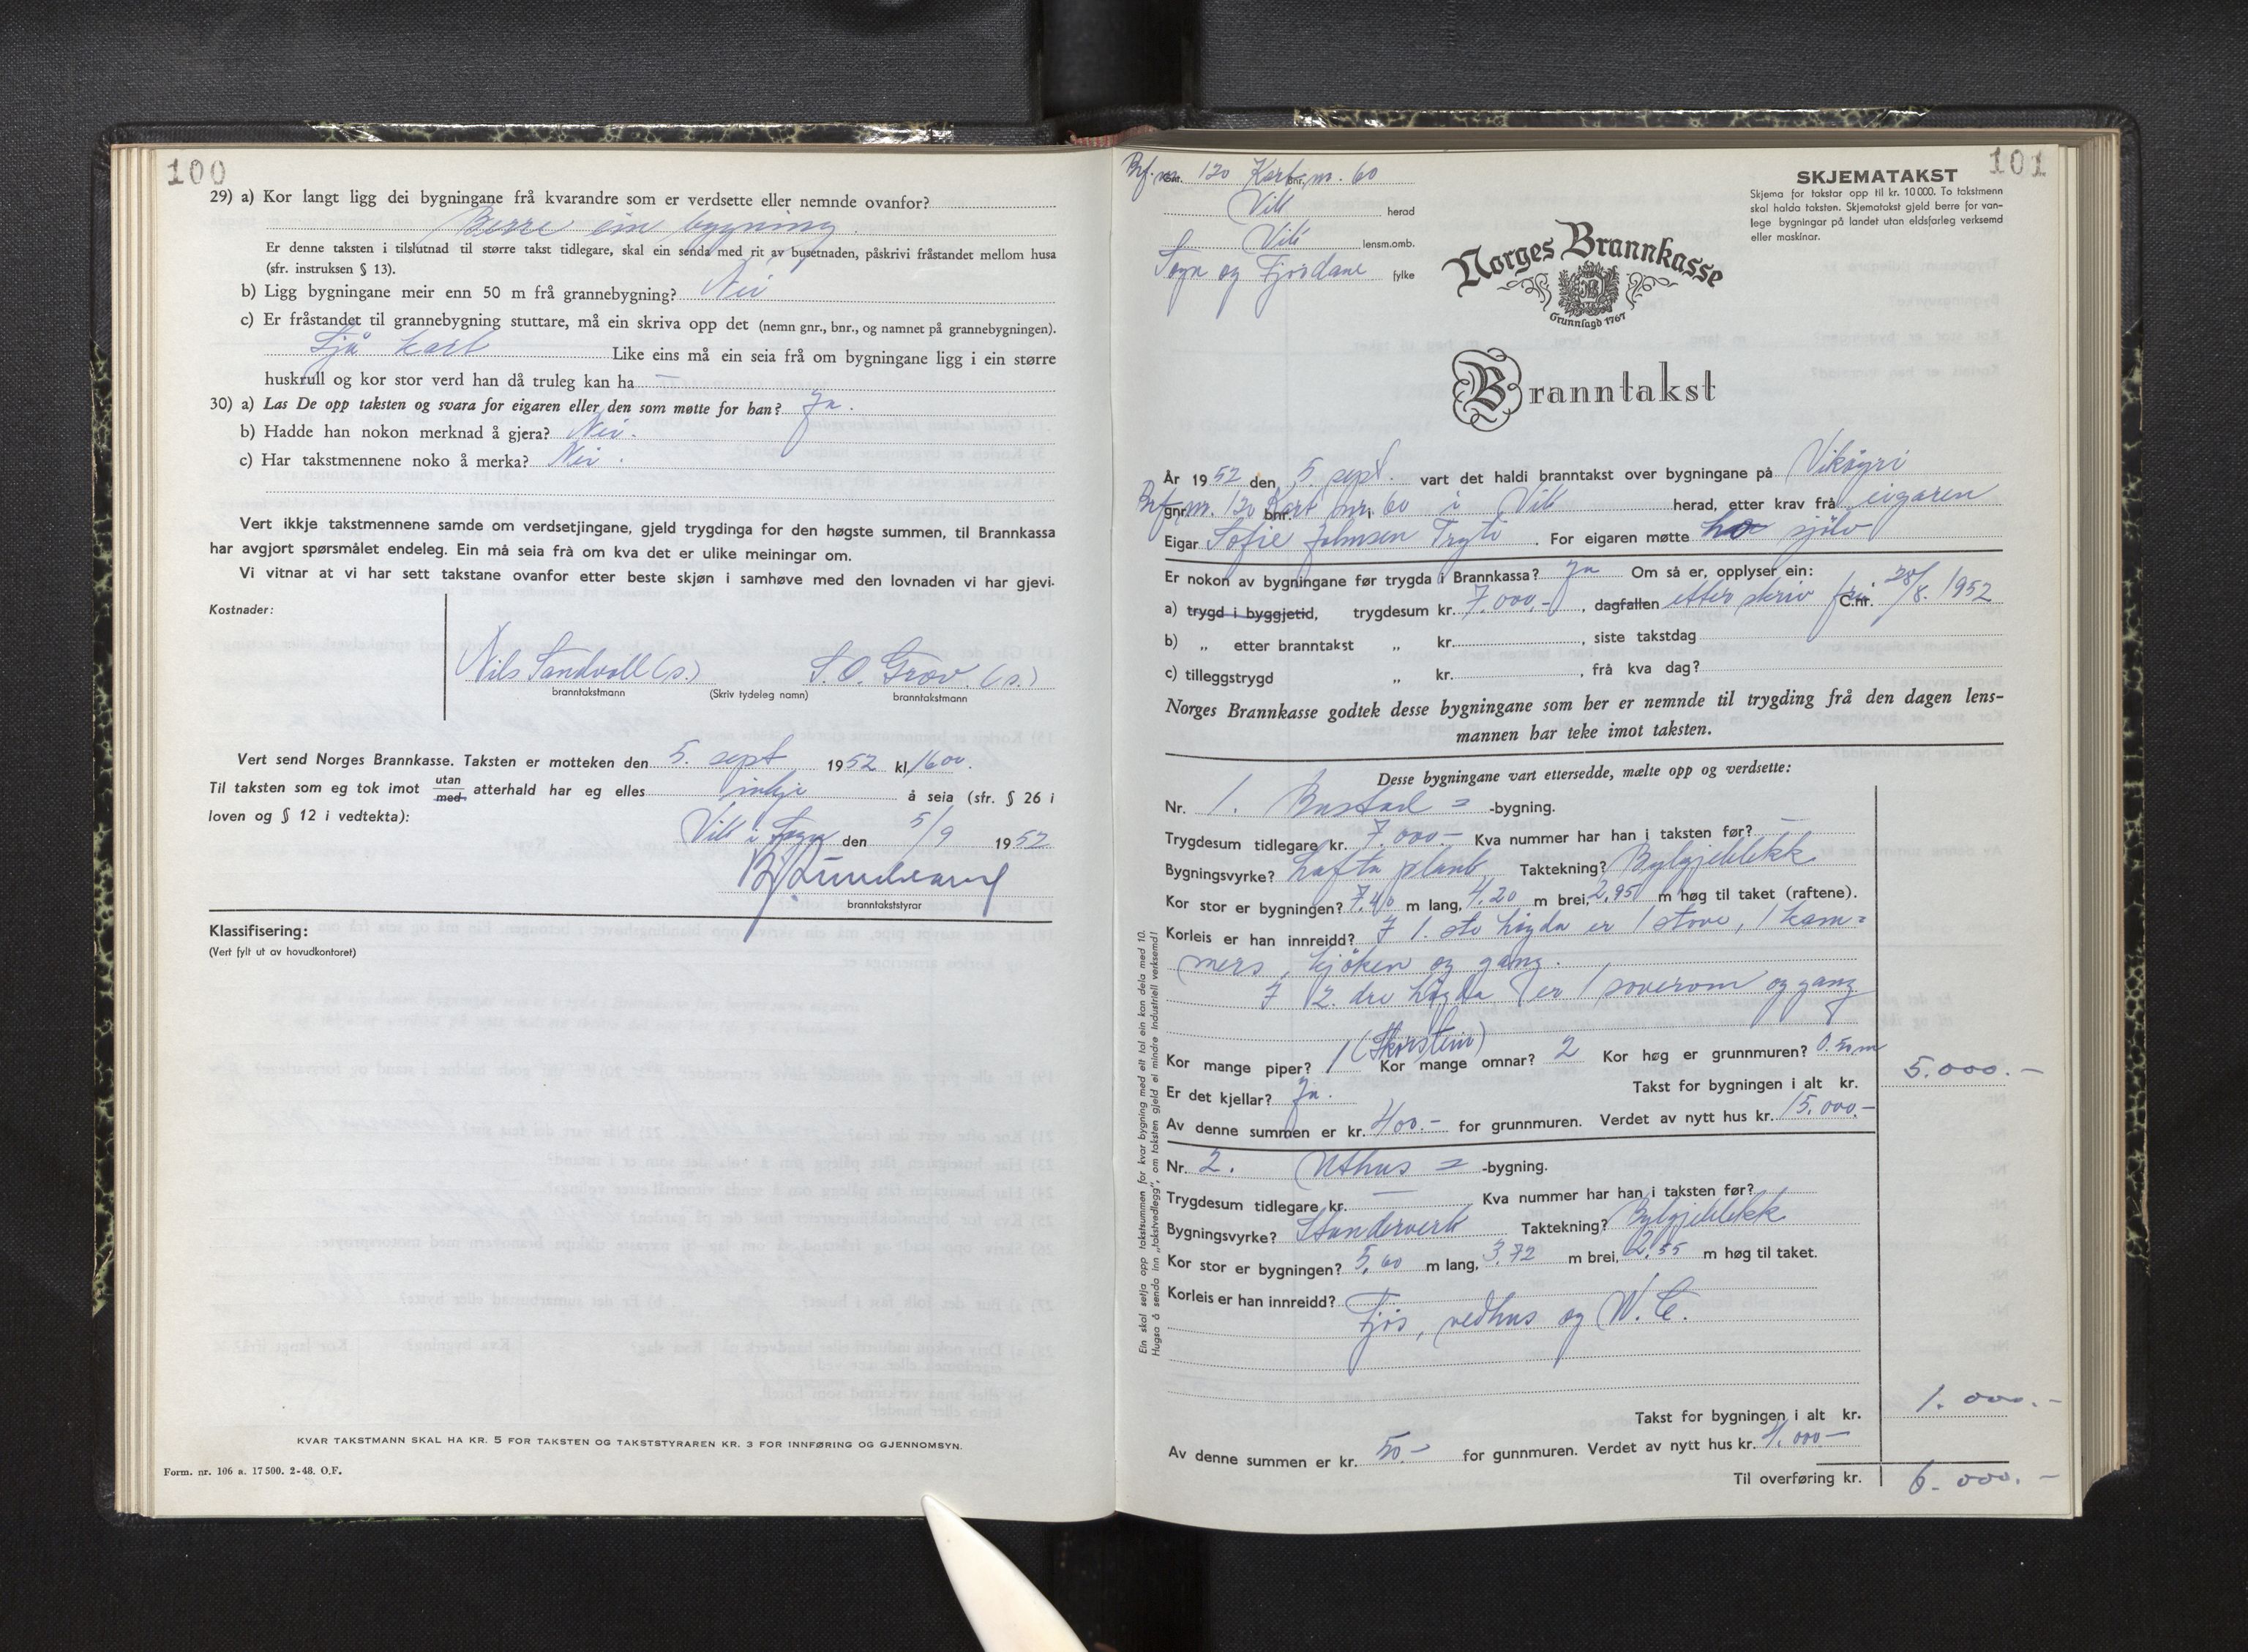 100
29) a) Kor langt ligg dei bygningane frå kvarandre som er verdsette eller nemnde ovanfor?
Berre ein bygning.
Er denne taksten i tilslutnad til større takst tidlegare, skal ein senda med rit av busetnaden, påskrivi fråstandet mellom husa
(sfr. instruksen § 13).
b) Ligg bygningane meir enn 50 m frå grannebygning? Nei
c) Er fråstandet til grannebygning stuttare, må ein skriva opp det (nemn gnr., bnr., og namnet på grannebygningen).
Sjå kart Like eins må ein seia frå om bygningane ligg i ein større
huskrull og kor stor verd han då truleg kan ha —
30) a) Las De opp taksten og svara for eigaren eller den som møtte for han? Ja.
b) Hadde han nokon merknad å gjera? Nei.
c) Har takstmennene noko å merka? Nei.
Vert ikkje takstmennene samde om verdsetjingane, gjeld trygdinga for den høgste summen, til Brannkassa
har avgjort spørsmålet endeleg. Ein må seia frå om kva det er ulike meiningar om.
Vi vitnar at vi har sett takstane ovanfor etter beste skjøn i samhøve med den lovnaden vi har gjevi.
Kostnader:
Nils Sandvoll (s.) S. O. Grov. (s.)
branntakstmann (Skriv tydeleg namn) branntakstmann
Vert send Norges Brannkasse. Taksten er motteken den 5. sept 1952 kl. 1600.
Til taksten som eg tok imot utan med atterhald har eg elles inkje å seia (sfr. § 26 i
loven og § 12 i vedtekta):
Vik i Sogn den 5/9 1952
branntakststyrar
Klassifisering:
(Vert fylt ut av hovudkontoret)
KVAR TAKSTMANN SKAL HA KR. 5 FOR TAKSTEN OG TAKSTSTYRAREN KR. 3 FOR INNFØRING OG GJENNOMSYN.
Form. nr. 106 a. 17 500. 2-48. O.F.
101
Brf. nr. 120 Kart nr. 60
Vik herad
Vik lensm.omb.
Sogn og Fjordane fylke
SKJEMATAKST
Skjema for takstar opp til kr. 10 000. To takstmenn
skal halda taksten. Skjematakst gjeld berre for van-
lege bygningar på landet utan eldsfarleg verksemd
eller maskinar.
Norges Brannkasse
Grunnlagd 1767
Branntakst
År 1952 den 5. sept. vart det haldi branntakst over bygningane på Vikøyri
Brf. gnr. nr. 120 bnr. Kart nr. 60 i Vik herad, etter krav frå eigaren
Eigar Sofie Johnsen Tryti. For eigaren møtte ho sjølv
Er nokon av bygningane før trygda i Brannkassa? Ja Om så er, opplyser ein:
a) trygd i byggjetid, trygdesum kr. 7.000,-, dagfallen etter skriv frå C.nr. 28/8. 1952
b) „ etter branntakst „ kr. , siste takstdag
c) tilleggstrygd „ kr. , frå kva dag?
Norges Brannkasse godtek desse bygningane som her er nemnde til trygding frå den dagen lens-
mannen har teke imot taksten.
Desse bygningane vart ettersedde, mælte opp og verdsette:
Nr. 1. Bustad = -bygning.
Trygdesum tidlegare kr. 7.000- Kva nummer har han i taksten før? —
Bygningsvyrke? Lafta plank Taktekning? Bylgjeblekk
Kor stor er bygningen? 7,40 m lang, 4,20 m brei, 2,95 m høg til taket (raftene).
Korleis er han innreidd? I 1. ste høgda er 1 stove, 1 kam=
mers, kjøken og gang.
I 2. dre høgda er 1 soverom og gang
Kor mange piper? 1 (Skorstein) Kor mange omnar? 2 Kor høg er grunnmuren? 0.50 m
Er det kjellar? Ja. Takst for bygningen i alt kr. 5.000.-
Av denne summen er kr. 400.- for grunnmuren. Verdet av nytt hus kr. 15.000.-
Nr. 2. Uthus = -bygning.
Trygdesum tidlegare kr. — Kva nummer har han i taksten før?
Bygningsvyrke? Standerverk Taktekning? Bylgjeblekk
Kor stor er bygningen? 5,60 m lang, 3,72 m brei, 2,55 m høg til taket.
Korleis er han innreidd? Fjos, vedhus og W.C.
Takst for bygningen i alt kr. 1.000.-
Av denne summen er kr. 50.- for gunnmuren. Verdet av nytt hus kr. 4.000-
Til overføring kr. 6.000.-
Ein skal setja opp takstsummen for kvar bygning med eit tal ein kan dela med 10.
Hugsa å senda inn „takstvedlegg", om taksten gjeld ei mindre industriell verksemd!